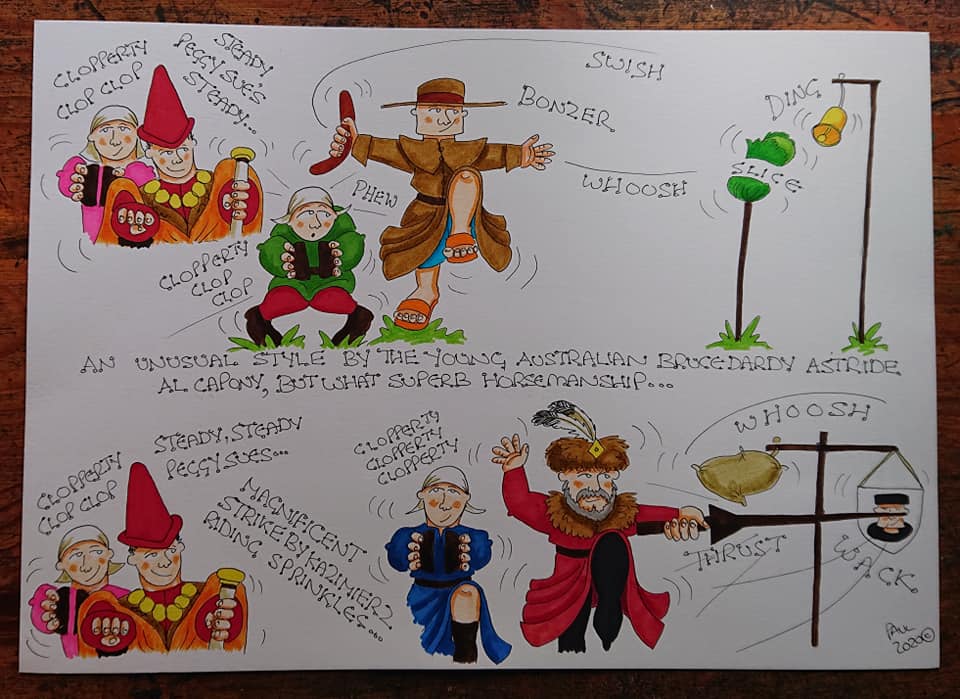 CLOPPERTY
CLOP CLOP
STEADY
PEGGY SUE'S
STEADY...
SWISH
BONZER
DING
SLICE
WHOOSH
PHEW
CLOPPERTY
CLOP
CLOP
AN UNUSUAL STYLE BY THE YOUNG AUSTRALIAN BRUCE DARDY ASTRIDE
AL CAPONY, BUT WHAT SUPERB HORSEMANSHIP...
CLOPPERTY
CLOP CLOP
STEADY, STEADY
PEGGY SUES...
MAGNIFICENT
STRIKE BY KAZIMIERZ
RIDING SPRINKLES...
CLOPPERTY
CLOPPERTY
CLOPPERTY
WHOOSH
THRUST
WACK
PAUL
2020©